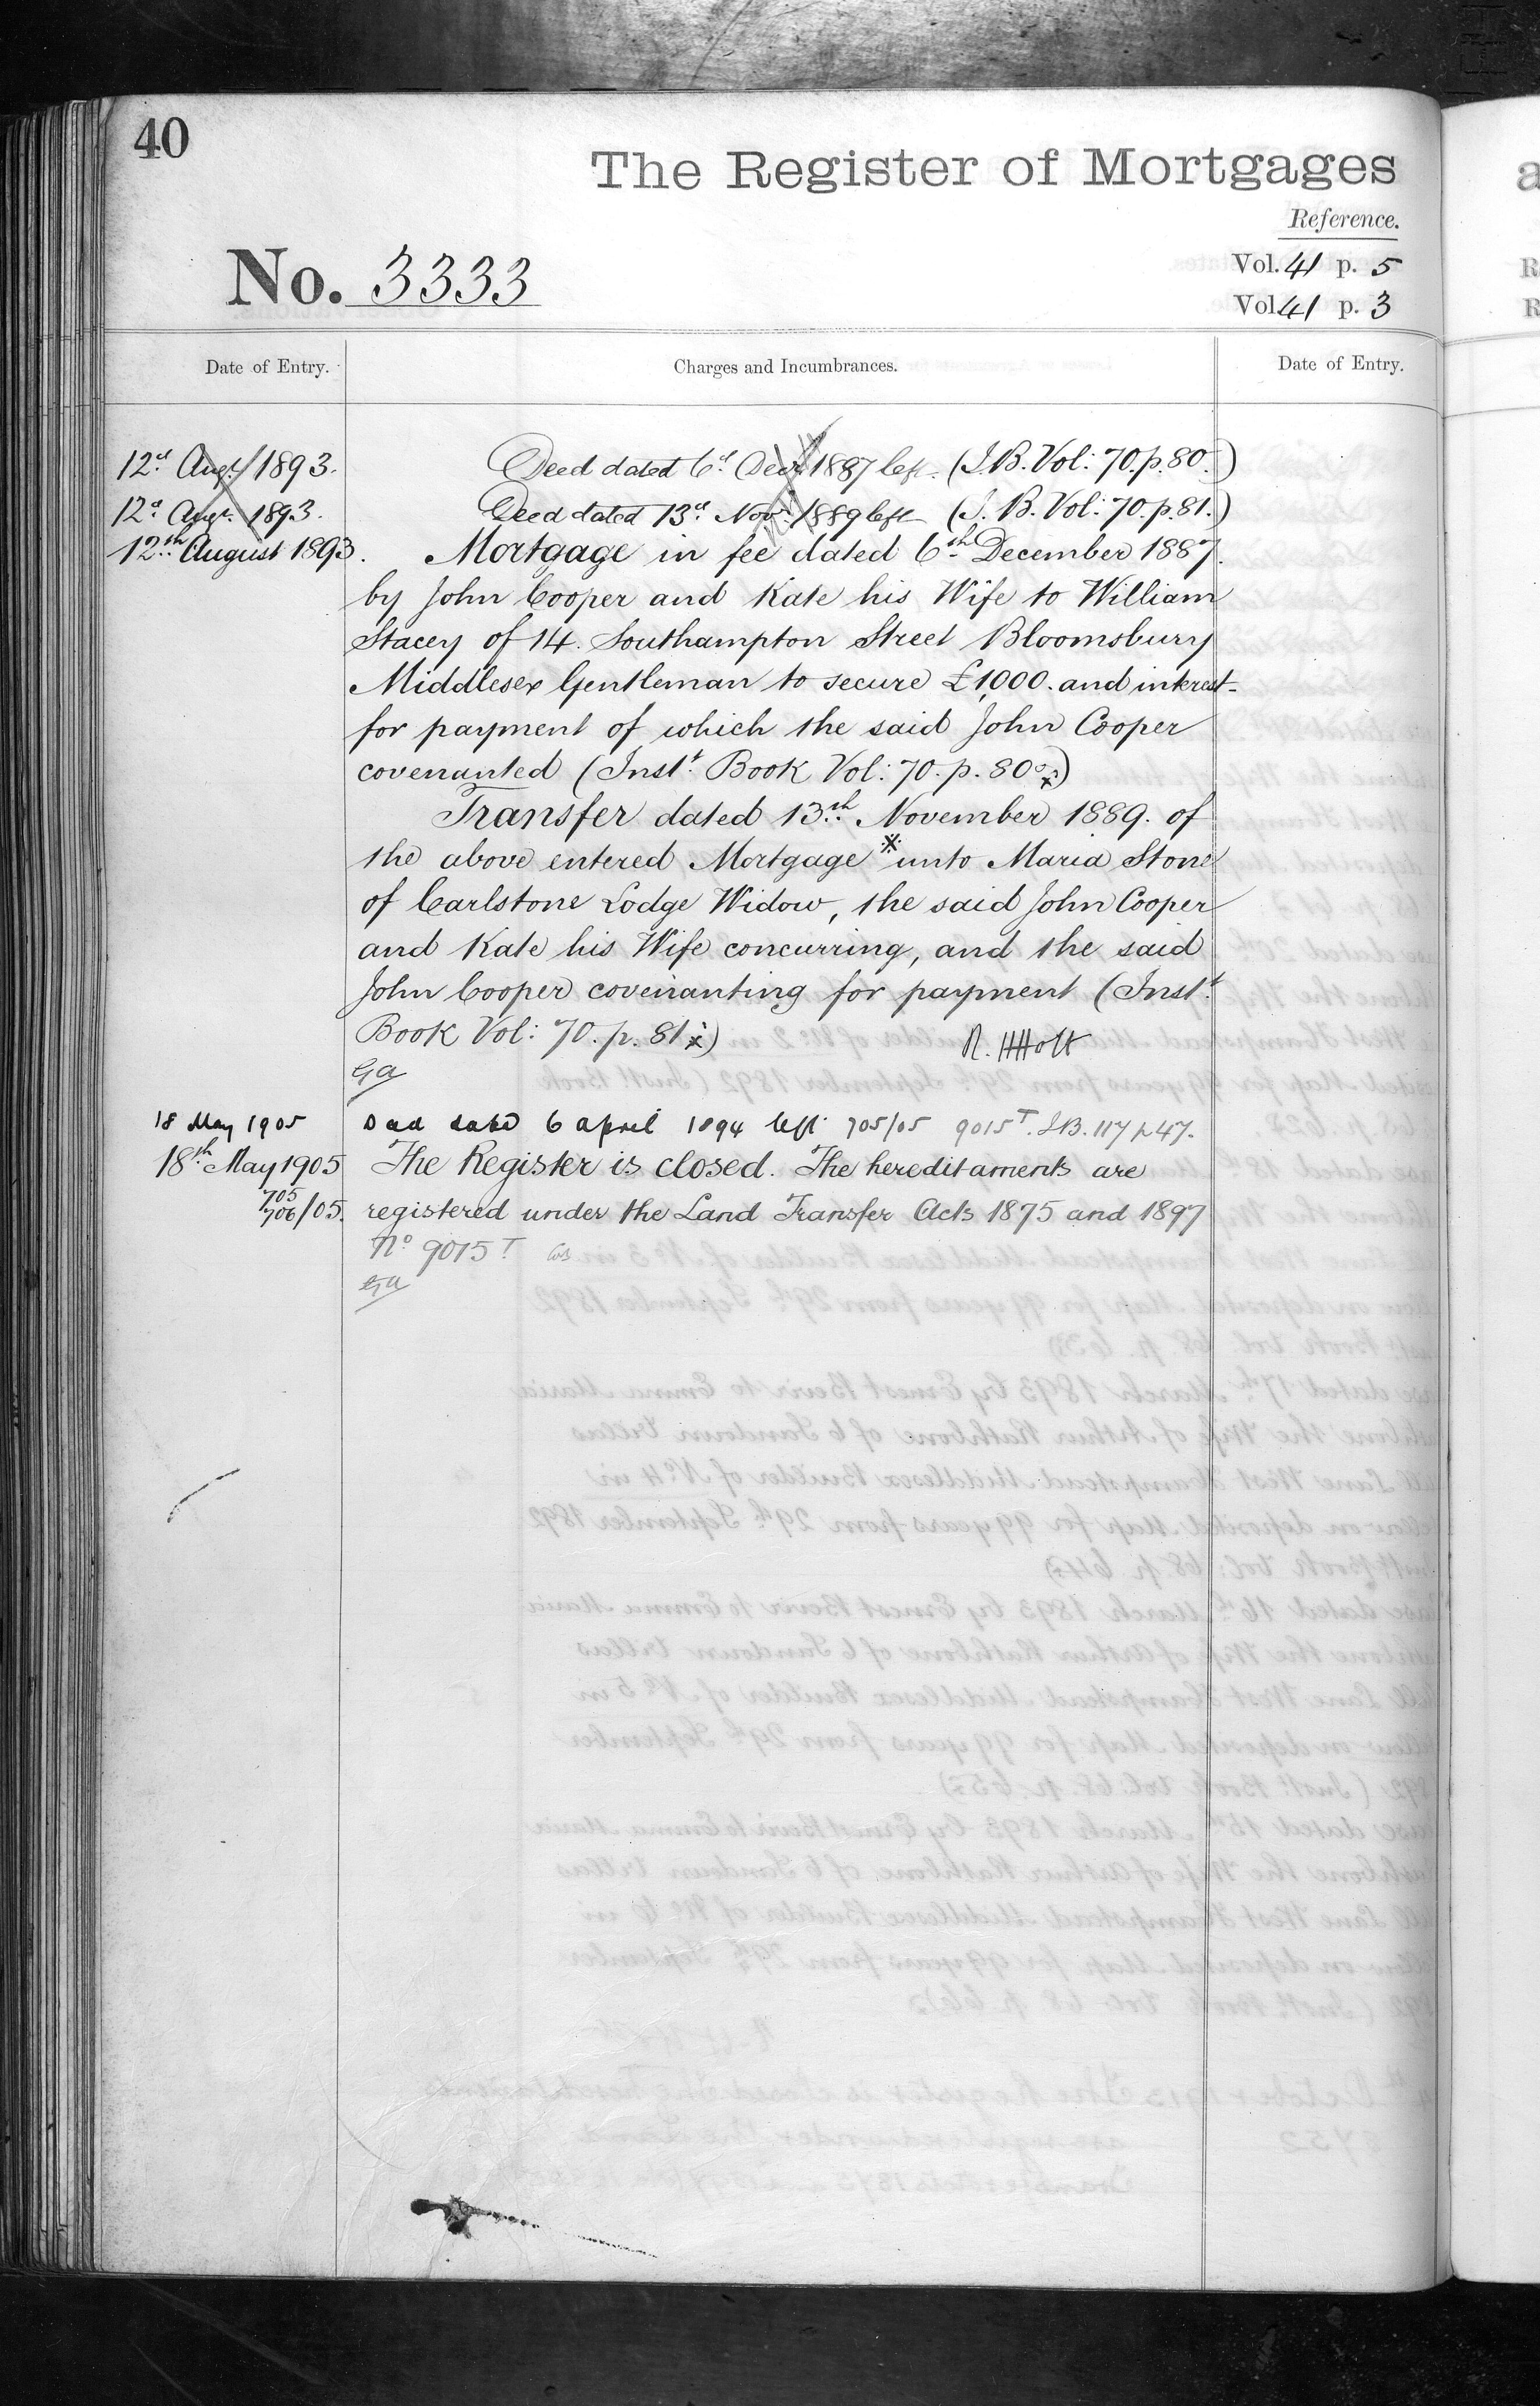 40
The Register of Mortgages
Reference.
No. 3333
Vol. 41 p. 5
Vol. 41 p. 3
Date of Entry.
Charges and Incumbrances.
Date of Entry.
12th Augt. 1893. Deed dated 6th Decr. 1887 left (I.B. Vol: 70. p. 80.)
12th Augt. 1893. Deed dated 13th Novr. 1889 left (I.B. Vol: 70. p. 81.)
12th August 1893. Mortgage in fee dated 6th December 1887.
by John Cooper and Kate his Wife to William
Stacey of 14. Southampton Street Bloomsbury
Middlesex Gentleman to secure £1,000. and interest
for payment of which the said John Cooper
covenanted (Inst. Book Vol: 70. p. 80.)
Transfer dated 13th November 1889. of
the above entered Mortgage unto Maria Stone
of Carlstone Lodge Widow, the said John Cooper
and Kate his Wife concurring, and the said
John Cooper covenanting for payment (Inst.
Book Vol: 70. p. 81)
R. H Holt
18 May 1905 Deed dated 6 april 1894 left 705/05 9015 T. I.B. 117 p 47.
18th May 1905 The Register is closed. The hereditaments are
705
706/05. registered under the Land Transfer Acts 1875 and 1897
No 9015 T